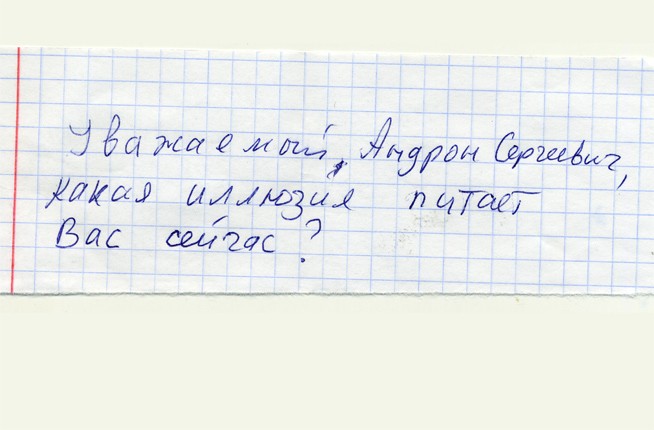 Уважаемый, Андрон Сергеевич,
какая иллюзия питает
Вас сейчас?